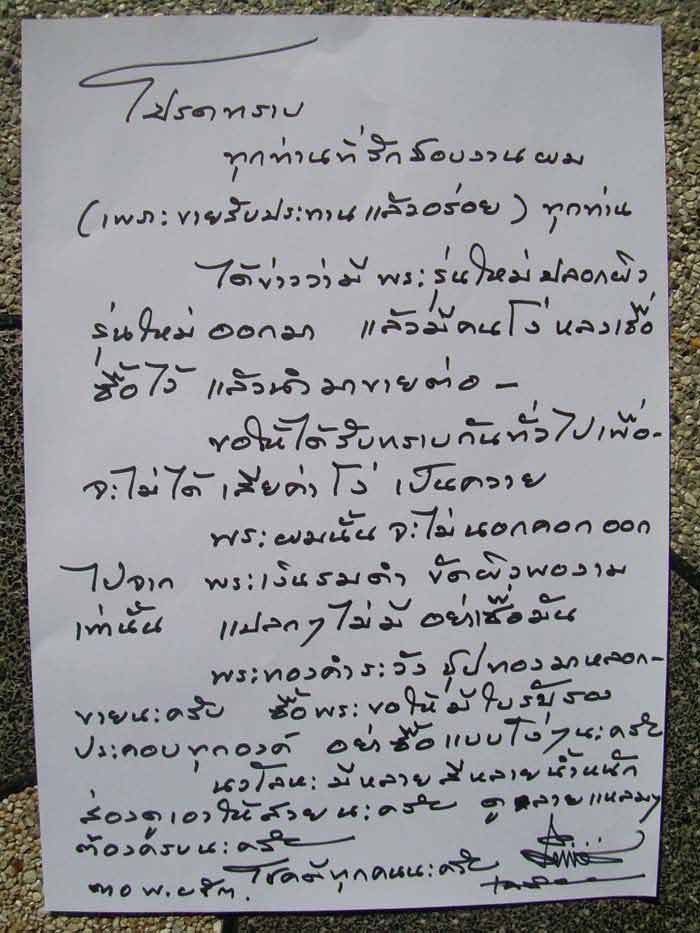 โปรดทราบ
ทุกท่านที่รักชอบงานผม
(เพราะขายรับประทานแล้วอร่อย) ทุกท่าน
ได้ข่าวว่ามี พระรุ่นใหม่ปลอกผิว
รุ่นใหม่ ออกมา แล้วมีคนโง่ หลงเชื่อ
ซื้อไว้ แล้วนำมาขายต่อ –
ขอให้ได้รับทราบกันทั่วไปเพื่อ-
จะไม่ได้ เสียค่าโง่ เป็นควาย
พระผมนั้น จะไม่นอกคอกออก
ไปจาก พระเงินรมดำ ขัดผิวพองาม
เท่านั้น แปลกๆ ไม่มี อย่าเชื่อมัน
พระทองคำระวัง ชุปทองมาหลอก-
ขายนะครับ ซื้อพระขอให้มีใบรับรอง
ประกอบทุกองค์ อย่าซื้อแบบโง่ๆนะครับ
นวโลหะ มีหลายสีหลายน้ำหนัก
ส่องดูเอาให้สวยนะครับ ดู ลายแหลมๆ
ต้องครบนะครับ
๓๐ พ.ย. โชคดีทุกคนนะครับ